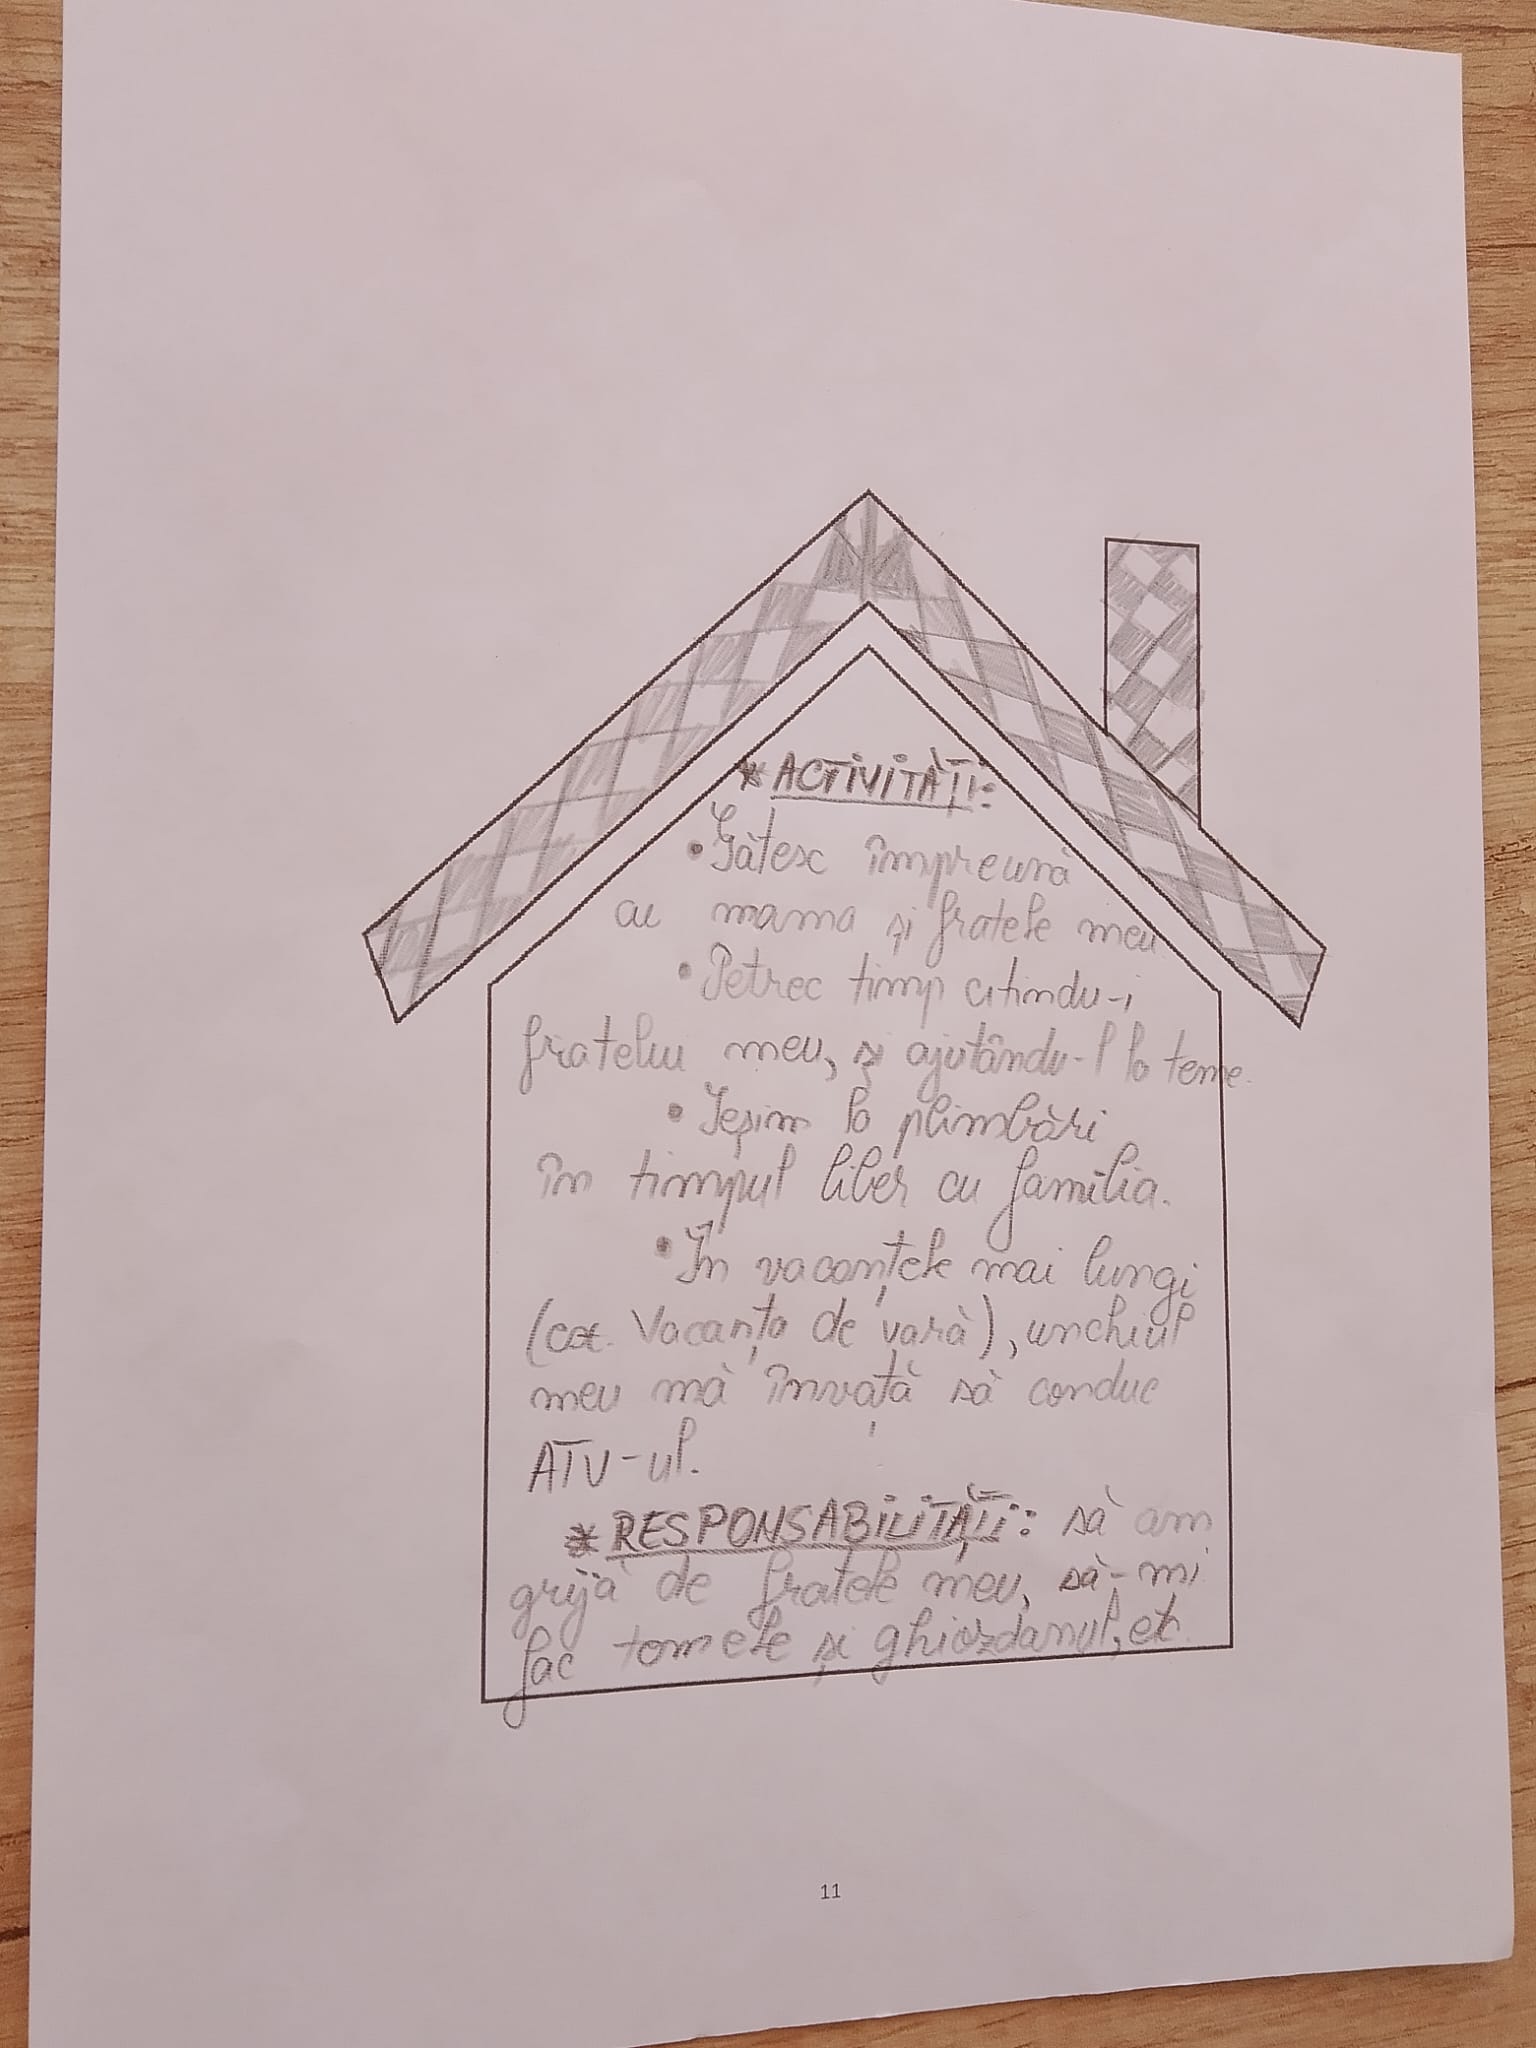 * ACTIVITĂȚI:
• Gătesc împreună
cu mama și fratele meu
• Petrec timp citindu-i
fratelui meu, și ajutându-l la teme.
• Ieșim la plimbări
în timpul liber cu familia.
• În vacanțele mai lungi
(ex. Vacanța de vară), unchiul
meu mă învață să conduc
ATV-ul.
* RESPONSABILITĂȚI: să am
grijă de fratele meu, să-mi
fac temele și ghiozdanul, etc.
11